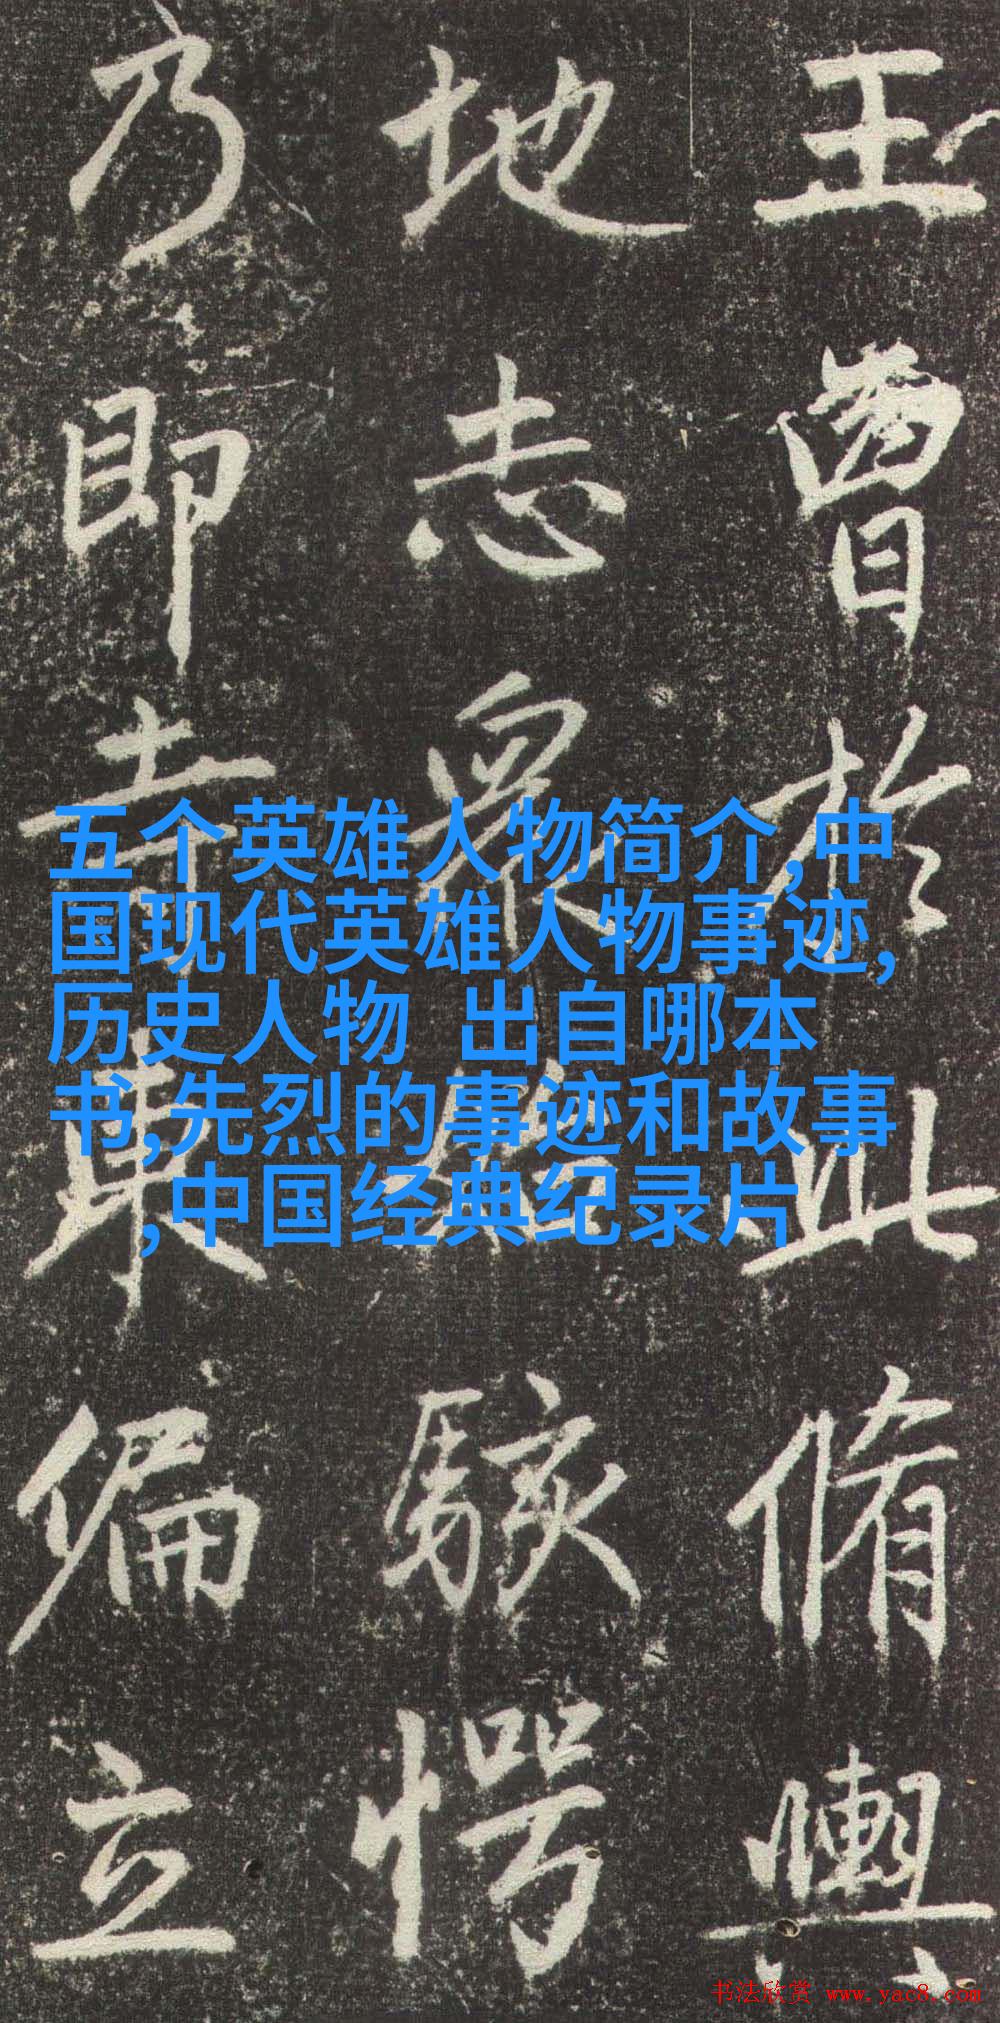 王曹於此脩輿
地志衆始駭愕
乃即寺東偏立
五个英雄人物简介,中
国现代英雄人物事迹,
历史人物 出自哪本
书,先烈的事迹和故事
,中国经典纪录片
书法欣赏 www.yac8.com